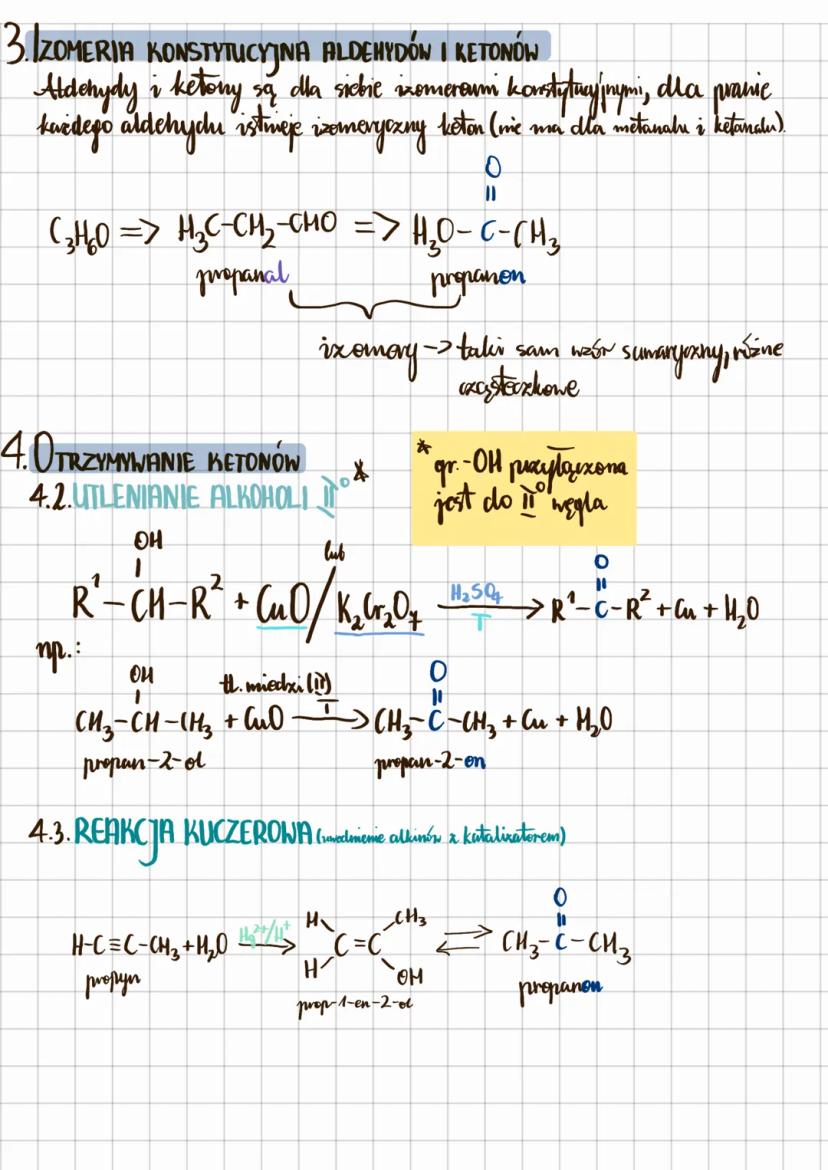 3. IZOMERIA KONSTYTUCYJNA ALDEHYDÓW I KETONÓW
Aldehydy i ketony są dla siebie izomerami konstytucyjnymi, dla prawie
każdego aldehydu istnieje izomeryczny keton (nie ma dla metanalu i ketanalu).
O
||
C₃H₆O => H₃C-CH₂-CHO => H₃O-C-CH₃
propanal propanon
izomery -> taki sam wzór sumaryczny, różne
cząsteczkowe
4. OTRZYMYWANIE KETONÓW
4.2. UTLENIANIE ALKOHOLI II° *
* gr. -OH przyłączona
jest do II° węgla
OH
|
R¹-CH-R² + CuO / lub K₂Cr₂O₇ H₂SO₄ T -> R¹-C-R² + Cu + H₂O
O
||
np.:
OH
|
CH₃-CH-CH₃ + CuO tl. miedzi (II) T -> CH₃-C-CH₃ + Cu + H₂O
O
||
propan-2-ol propan-2-on
4.3. REAKCJA KUCZEROWA (uwodnienie alkinów z katalizatorem)
H-C≡C-CH₃ + H₂O Hg²⁺/H⁺ -> H H C=C CH₃ OH ⇌ CH₃-C-CH₃
O
||
propyn prop-1-en-2-ol propanon